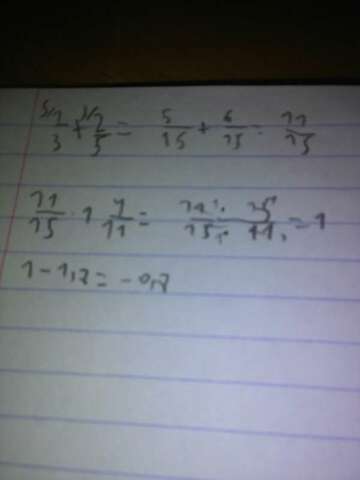 5/1/3 + 3/2/5 = 5/15 + 6/15 = 11/15
11/15 · 1 4/11 = 11/15 · 15/11 = 1
1 - 1,2 = -0,2